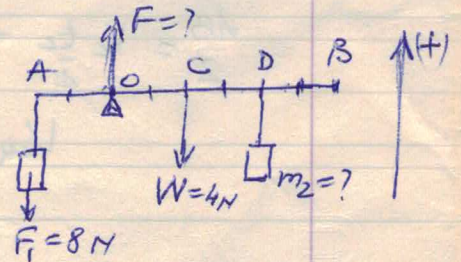 F=?
(+)
A O C D B
W=4N
m₂=?
F₁=8N